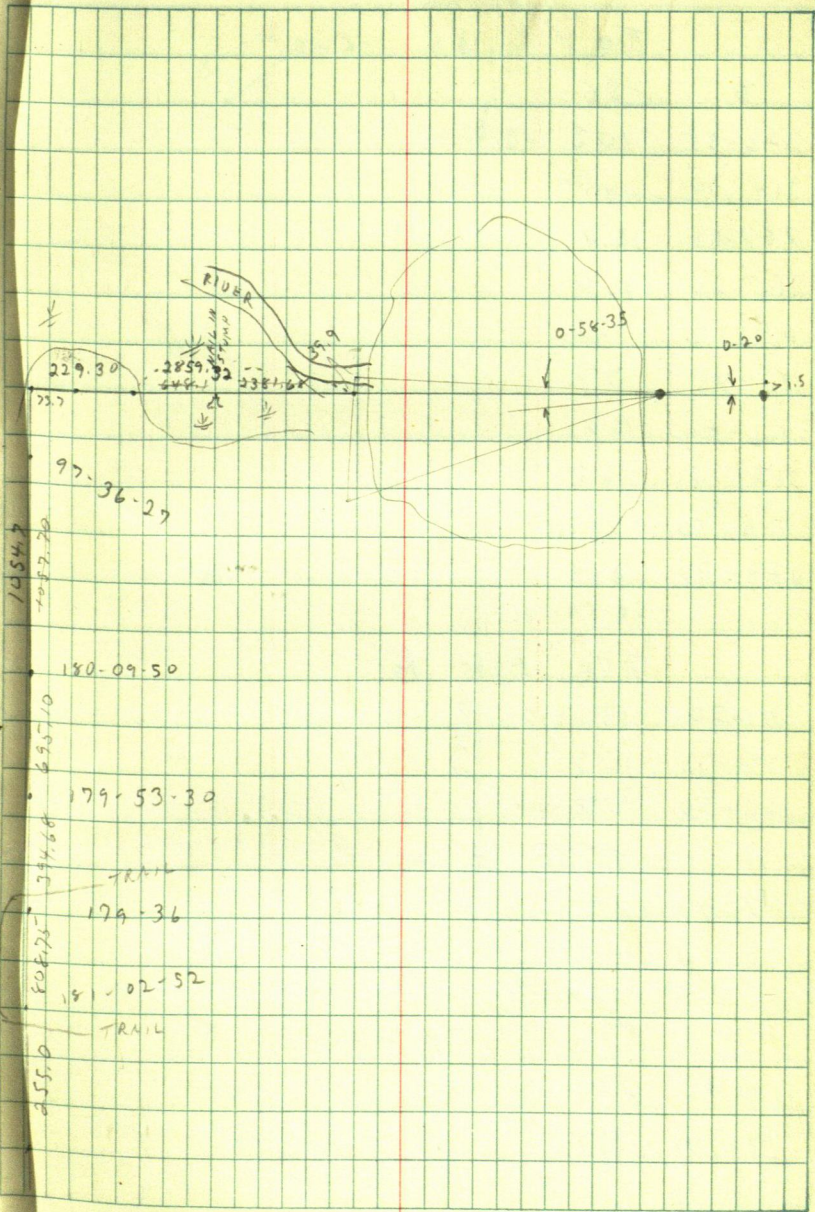 RIVER
39.9
0-58-35
0-20
229.30
2859.32
2381.68
1.5
73.7
97-36-27
1054.7
180-09-50
695.10
179-53-30
394.68
TRAIL
179-36
808.75
181-02-52
TRAIL
255.0